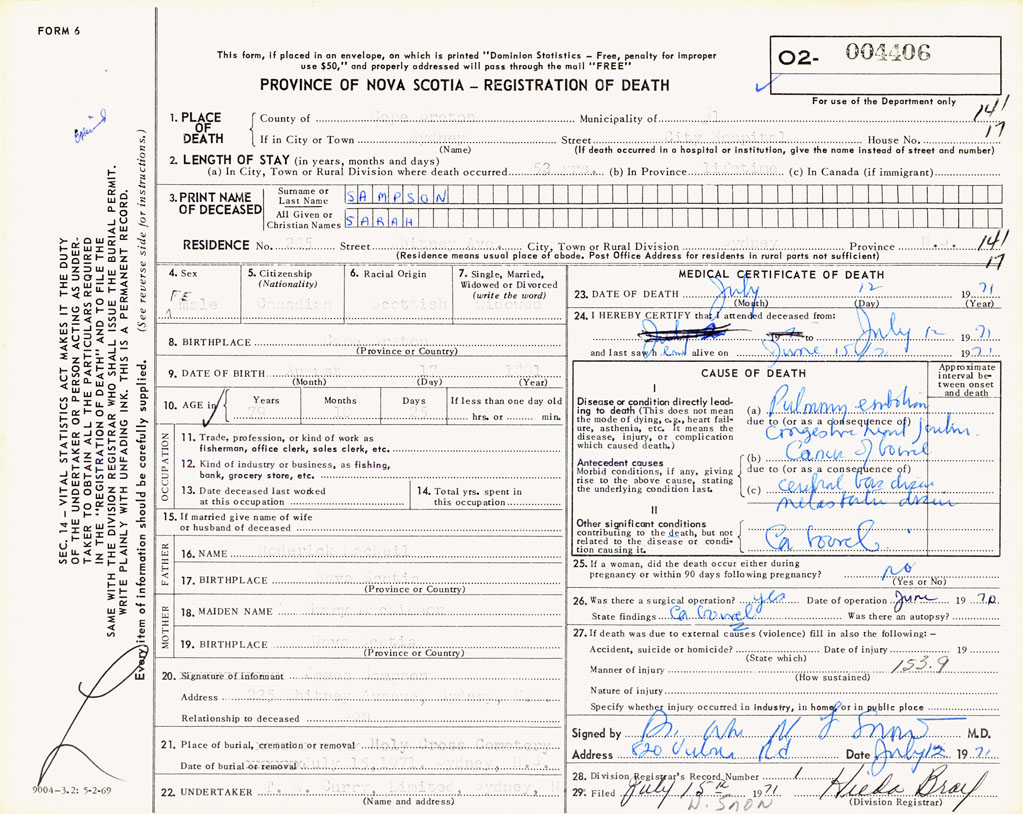 FORM 6
This form, if placed in an envelope, on which is printed "Dominion Statistics – Free, penalty for improper
use $50," and properly addressed will pass through the mail "FREE"
PROVINCE OF NOVA SCOTIA – REGISTRATION OF DEATH
O2- 004406
For use of the Department only
141
17
SEC. 14 – VITAL STATISTICS ACT MAKES IT THE DUTY
OF THE UNDERTAKER OR PERSON ACTING AS UNDER-
TAKER TO OBTAIN ALL THE PARTICULARS REQUIRED
IN THE "REGISTRATION OF DEATH" AND TO FILE THE
SAME WITH THE DIVISION REGISTRAR WHO SHALL ISSUE THE BURIAL PERMIT.
WRITE PLAINLY WITH UNFADING INK. THIS IS A PERMANENT RECORD.
Every item of information should be carefully supplied. (See reverse side for instructions.)
1. PLACE OF DEATH
County of Cape Breton Municipality of
If in City or Town Sydney Street City Hospital House No.
(Name) (If death occurred in a hospital or institution, give the name instead of street and number)
2. LENGTH OF STAY (in years, months and days)
(a) In City, Town or Rural Division where death occurred 52 yrs. (b) In Province lifetime (c) In Canada (if immigrant)
3. PRINT NAME OF DECEASED
Surname or Last Name SAMPSON
All Given or Christian Names SARAH
RESIDENCE No. 225 Street Whitney Ave. City, Town or Rural Division Sydney Province N.S.
(Residence means usual place of abode. Post Office Address for residents in rural parts not sufficient)
141
17
4. Sex
FEmale
5. Citizenship
(Nationality)
Canadian
6. Racial Origin
Scottish
7. Single, Married,
Widowed or Divorced
(write the word)
Widowed
8. BIRTHPLACE
(Province or Country)
9. DATE OF BIRTH August 17
(Month) (Day) (Year)
10. AGE in Years Months Days If less than one day old
79 10 25 hrs. or min.
OCCUPATION
11. Trade, profession, or kind of work as
fisherman, office clerk, sales clerk, etc.
12. Kind of industry or business, as fishing,
bank, grocery store, etc.
13. Date deceased last worked
at this occupation
14. Total yrs. spent in
this occupation
15. If married give name of wife
or husband of deceased
FATHER
16. NAME Roderick MacNeil
17. BIRTHPLACE Nova Scotia
(Province or Country)
MOTHER
18. MAIDEN NAME Mary
19. BIRTHPLACE Nova Scotia
(Province or Country)
20. Signature of informant Sampson
Address 225 Whitney Avenue, Sydney, N.S.
Relationship to deceased Son
21. Place of burial, cremation or removal Holy Cross Cemetery
Date of burial or removal July 15, 1971
22. UNDERTAKER Curry Limited, Sydney, N
(Name and address)
9004-3.2: 5-2-69
MEDICAL CERTIFICATE OF DEATH
23. DATE OF DEATH July 12 1971
(Month) (Day) (Year)
24. I HEREBY CERTIFY that I attended deceased from:
19 to July 12 1971
and last saw her alive on June 15/12 1971
CAUSE OF DEATH
Approximate
interval be-
tween onset
and death
I
Disease or condition directly lead-
ing to death (This does not mean
the mode of dying, e.g., heart fail-
ure, asthenia, etc. it means the
disease, injury, or complication
which caused death.)
(a) Pulmonary embolism
due to (or as a consequence of)
Congestive heart failure
Antecedent causes
Morbid conditions, if any, giving
rise to the above cause, stating
the underlying condition last.
(b) Cancer of bowel
due to (or as a consequence of)
(c) cerebral vas disease
metastatic disease
II
Other significant conditions
contributing to the death, but not
related to the disease or condi-
tion causing it.
Ca bowel
25. If a woman, did the death occur either during
pregnancy or within 90 days following pregnancy? no
(Yes or No)
26. Was there a surgical operation? yes Date of operation June 1970
State findings Ca bowel Was there an autopsy?
27. If death was due to external causes (violence) fill in also the following: –
Accident, suicide or homicide? Date of injury 19
(State which)
Manner of injury 153.9
(How sustained)
Nature of injury
Specify whether injury occurred in industry, in home, or in public place
Signed by M.D.
Address 520 Rd Date July 12 1971
28. Division Registrar's Record Number 1
29. Filed July 15th 1971 Hilda Bray
(Division Registrar)